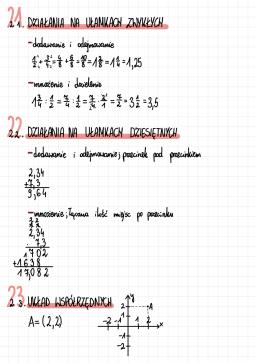 21. DZIAŁANIA NA UŁAMKACH ZWYKŁYCH
- dodawanie i odejmowanie
- mnożenie i dzielenie
1 3/4 : 1/2 = 7/4 : 1/2 = 7/4 · 2/1 = 7/2 = 3 1/2 = 3,5
22. DZIAŁANIA NA UŁAMKACH DZIESIĘTNYCH
- dodawanie i odejmowanie; przecinek pod przecinkiem
2,34
+7,3
9,64
- mnożenie; łączna ilość miejsc po przecinku
2,34
7,3
1702
+1638
17,082
23. UKŁAD WSPÓŁRZĘDNYCH
A = (2,2)
y
2
A
1
-2 -1 1 2 x
-1
-2